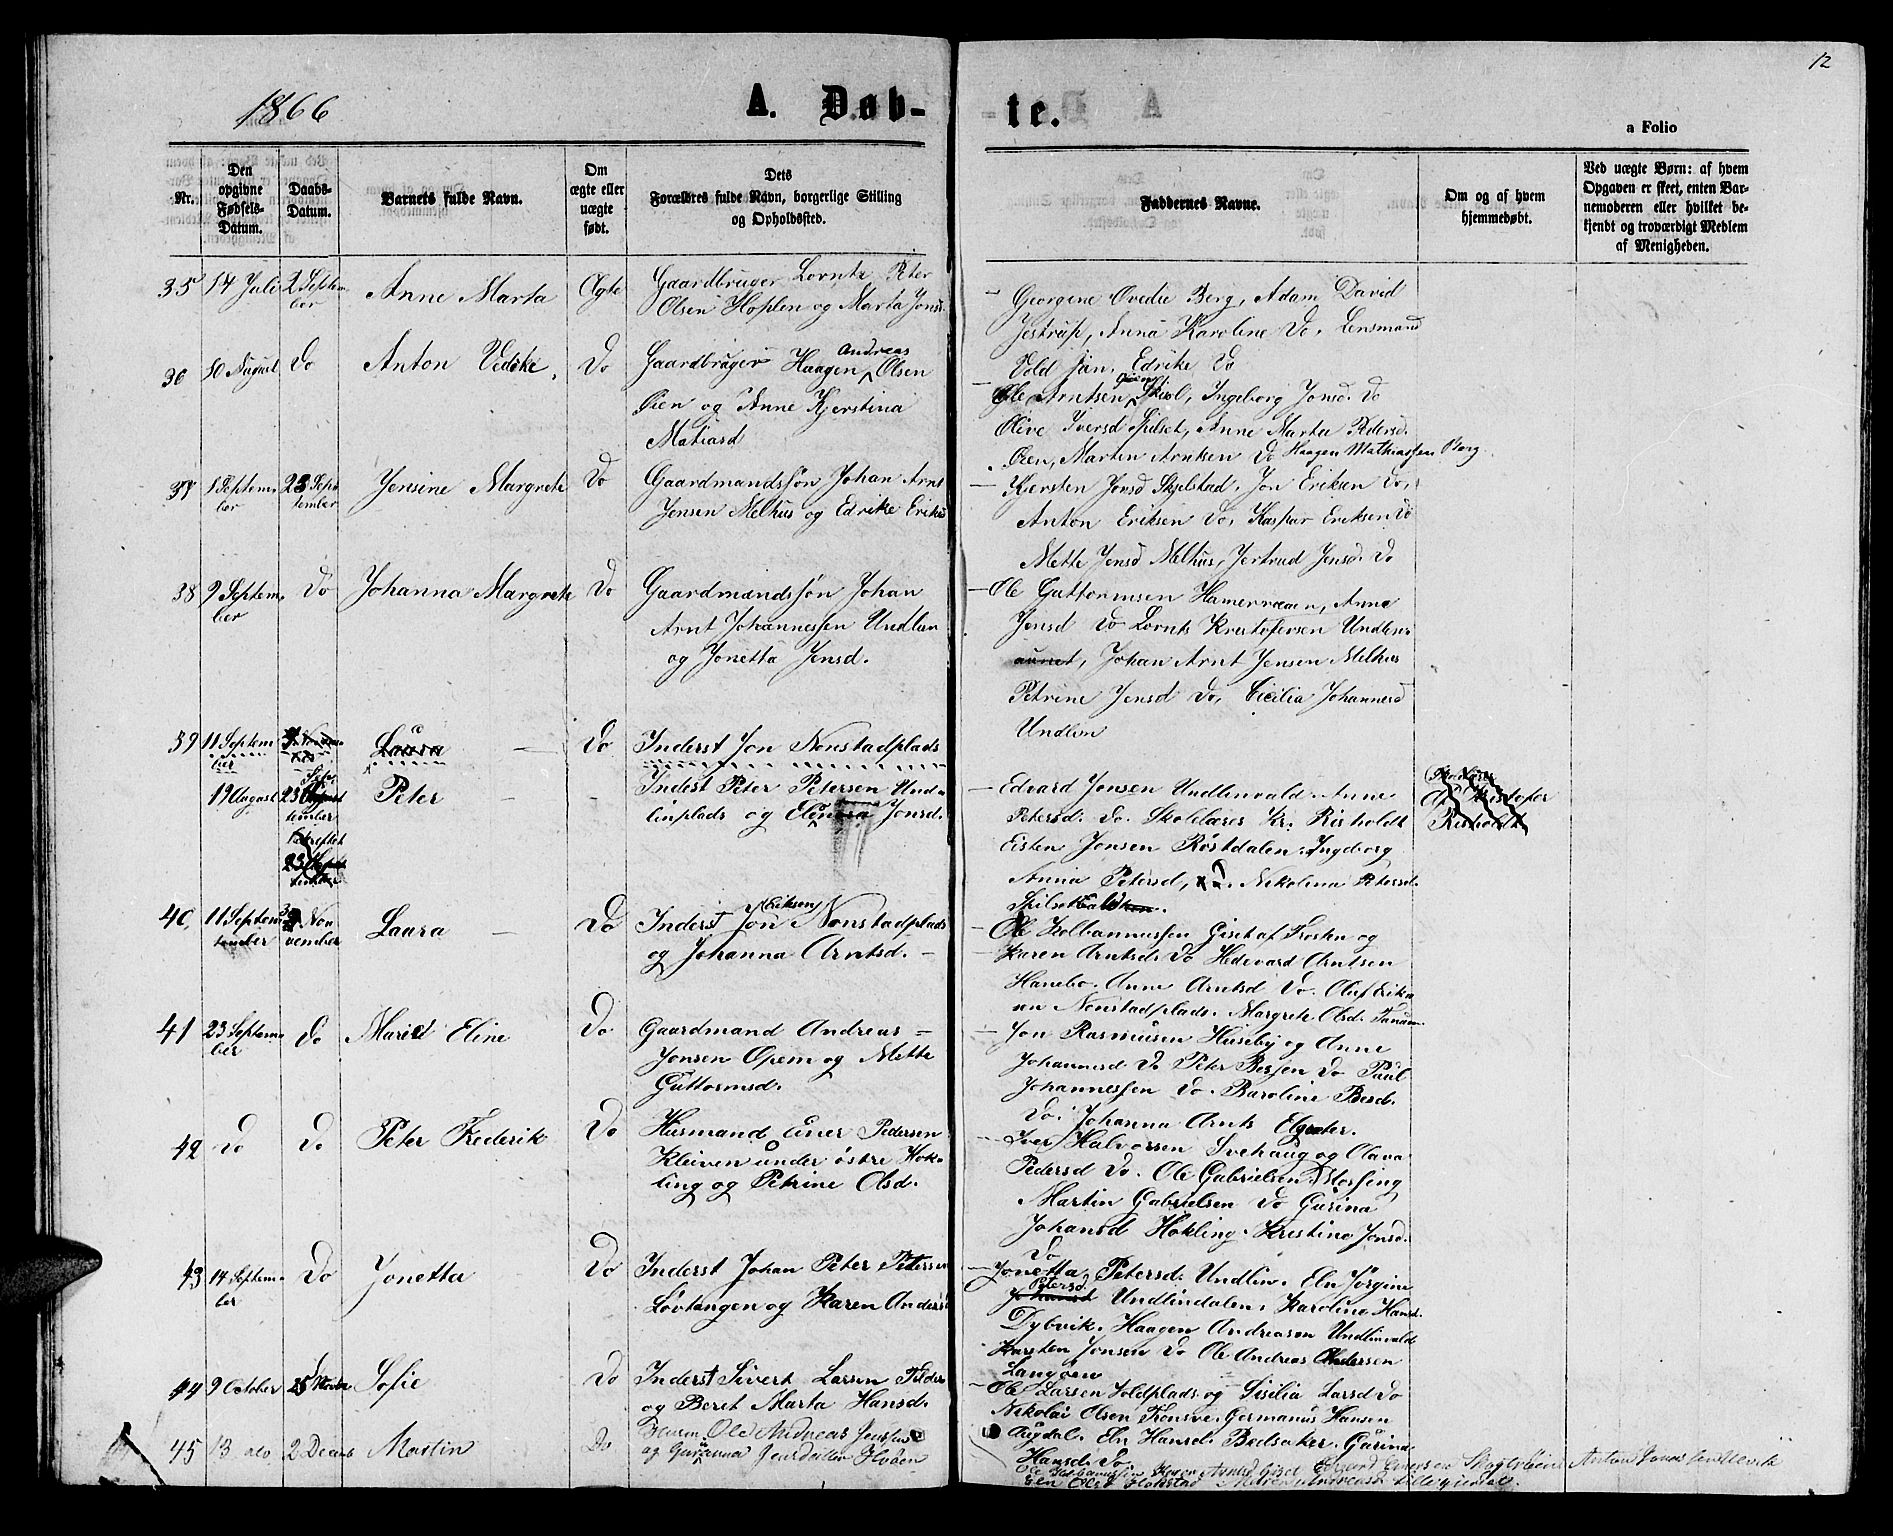 12
1866
A. Døb-
te.
a Folio
Nr.
Den opgivne Fødsels-Datum.
Daabs-Datum.
Barnets fulde Navn.
Om ægte eller uægte født.
Dets Forældres fulde Navn, borgerlige Stilling og Opholdssted.
Faddernes Navne.
Om og af hvem hjemmedøbt.
Ved uægte Børn: af hvem Opgaven er skeet, enten Barnemoderen eller hvilket bekjendt og troværdigt Medlem af Menigheden.
35 14 Juli 2 Septem Anne Marta Ægte Gaardbruger Lornts Peter
ber Olsen Hoplen og Marta Jonsd.
Georgene Ovedie Berg, Adam David
Jestrup, Anna Karoline Do, Lensmand
Vold jun. Edrike Do
36 10 August Do Anton Do Gaardbruger Haagen Andreas Olsen
Øien og Anne Kjerstina
Matiasd
Ole Arntsen Øien Skiel, Ingeborg Jonsd. Do
Olive Iversd Spilset, Anne Marta Pedersd.
Øien, Martin Arntsen Do Haagen Mathiassen Berg.
37 1 Septem 23 Sep Jensine Margrete Do Gaardmandssøn Johan Arnt
ber tember Jensen Melhus og Edrike Eriksd
Kjersten Jonsd Skjelstad. Jon Eriksen Do,
Anton Eriksen Do, Kaspar Eriksen Do
Mette Jensd Melhus, Jertrud Jensd. Do
38 9 Septem Do Johanna Margrete Do Gaardmandssøn Johan
ber Arnt Johannessen Undlin
og Jonetta Jensd.
Ole Guttormsen Hamernesaun, Anne
Jonsd Do Lornts Kristofersen Undlin
aunet, Johan Arnt Jensen Melhus
Petrine Jensd Do, Cicilia Johannesd
Undlin
39 11 Septem Laura Do Inderst Jon Nonstadplads
ber
19 August 23 Sep Peter - Inderst Peter Petersen Und-
tember linplads og Elen Jonsd.
23 Sep
tember
Edvard Jonsen Undlinvald Anne
Petersd. Do. Skolelærer Kr. Risholdt
Eisten Jonsen Røstdalen. Ingeborg
Anna Petersd, Nikolina Petersd.
Spilset
Kristofer
Risholdt
40, 11 Septem 3 No Laura - Do Inderst Jon Eriksen Nonstadplads
ber vember og Johanna Arntsd. -
Ole Kolbannussen Giset af Frosten og
Karen Arntsd. Do Hedevard Arntsen
Hanebo. Anne Arntsd Do. Oluf Erik
sen Nonstadplads. Margrete Olsd. Fanum
41 23 Septem Do Maria Eline Do Gaardmand Andreas =
ber Jonsen Opem og Mette
Guttormsd.
Jon Rasmusen Huseby og Anne
Johannesd Do Peter Do Paul
Johannessen Do. Karoline
Do. Johanna Arnts Elgseter.
42 Do Do Peter Frederik Do Husmand Einer Pedersen
Kleiven under østre Hok-
ling og Petrine Olsd.
Iver Halvorsen Svehaug og Olava
Pedersd Do. Ole Gabrielsen Morsing
Martin Gabrielsen Do Gurina
Johansd Hokling. Kristine Jonsd.
Do
43 14 Septem Do Jonetta Do Inderst Johan Peter Petersen
ber Løvtangen og Karen Andersd
Jonetta Petersd. Undlin. Eln Jørgine
Petersd Undlindalen. Karoline Hansd.
Dybvik. Haagen Andreasen Undlinvald
Karsten Jonsen Do Ole Andreas Andersen
Langøen
44 9 October 25 Sofie Do Inderst Sivert Larsen
og Beret Marta Hansd.
Ole Larsen Voldplads og Sisilia Larsd Do
Nikolai Olsen Fonsve. Germanus Hansen
Augdal. Eln Hansd. Bedsaker. Gurina
Hansd. Do
45 13 Do 2 Decemb Martin Do Ole Andreas Jensen
og Guruanna
Ole Kolbanussen Karen Arnsd Giset Edvard Einersen
Elen Olsd